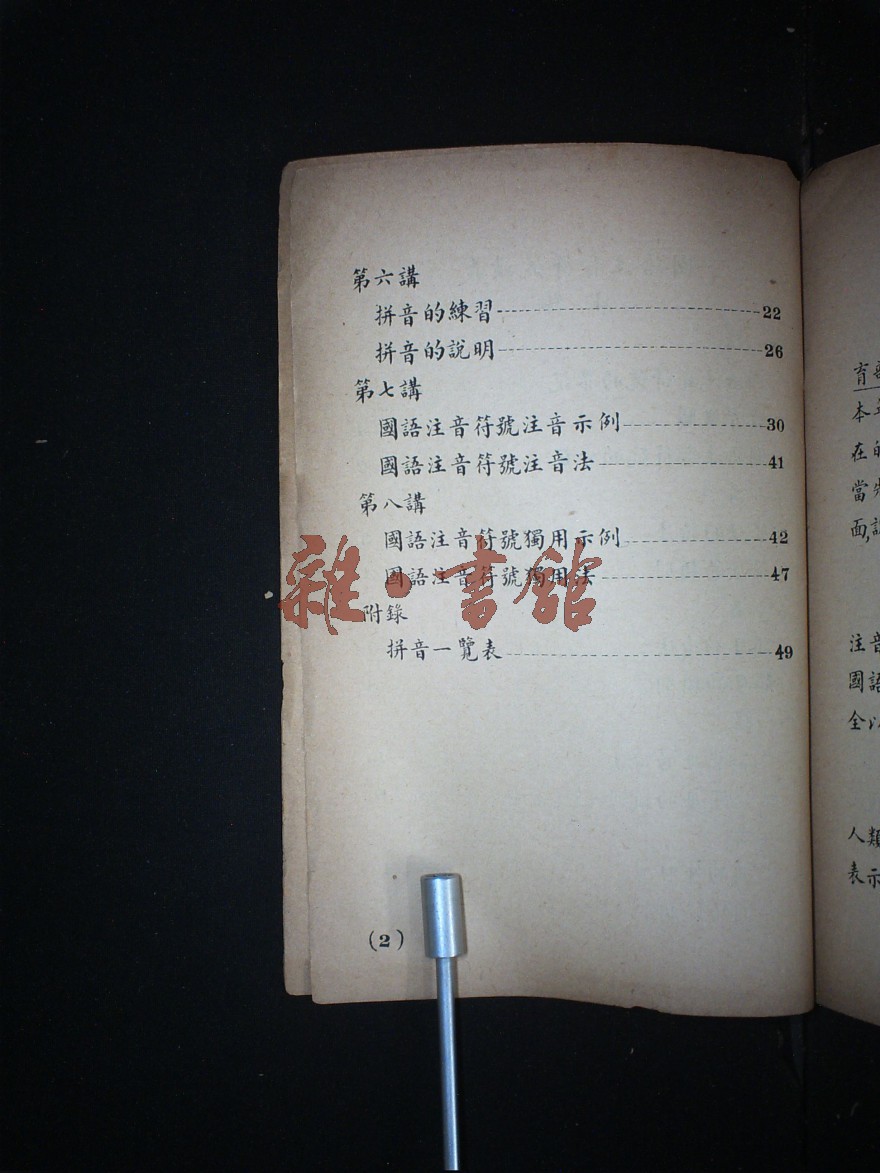 第六講
拼音的練習 22
拼音的說明 26
第七講
國語注音符號注音示例 30
國語注音符號注音法 41
第八講
國語注音符號獨用示例 42
國語注音符號獨用法 47
附錄
拼音一覽表 49
(2)
雜·書館
育
本
在的
當先
面,
注音
國語
全以
人類
表示